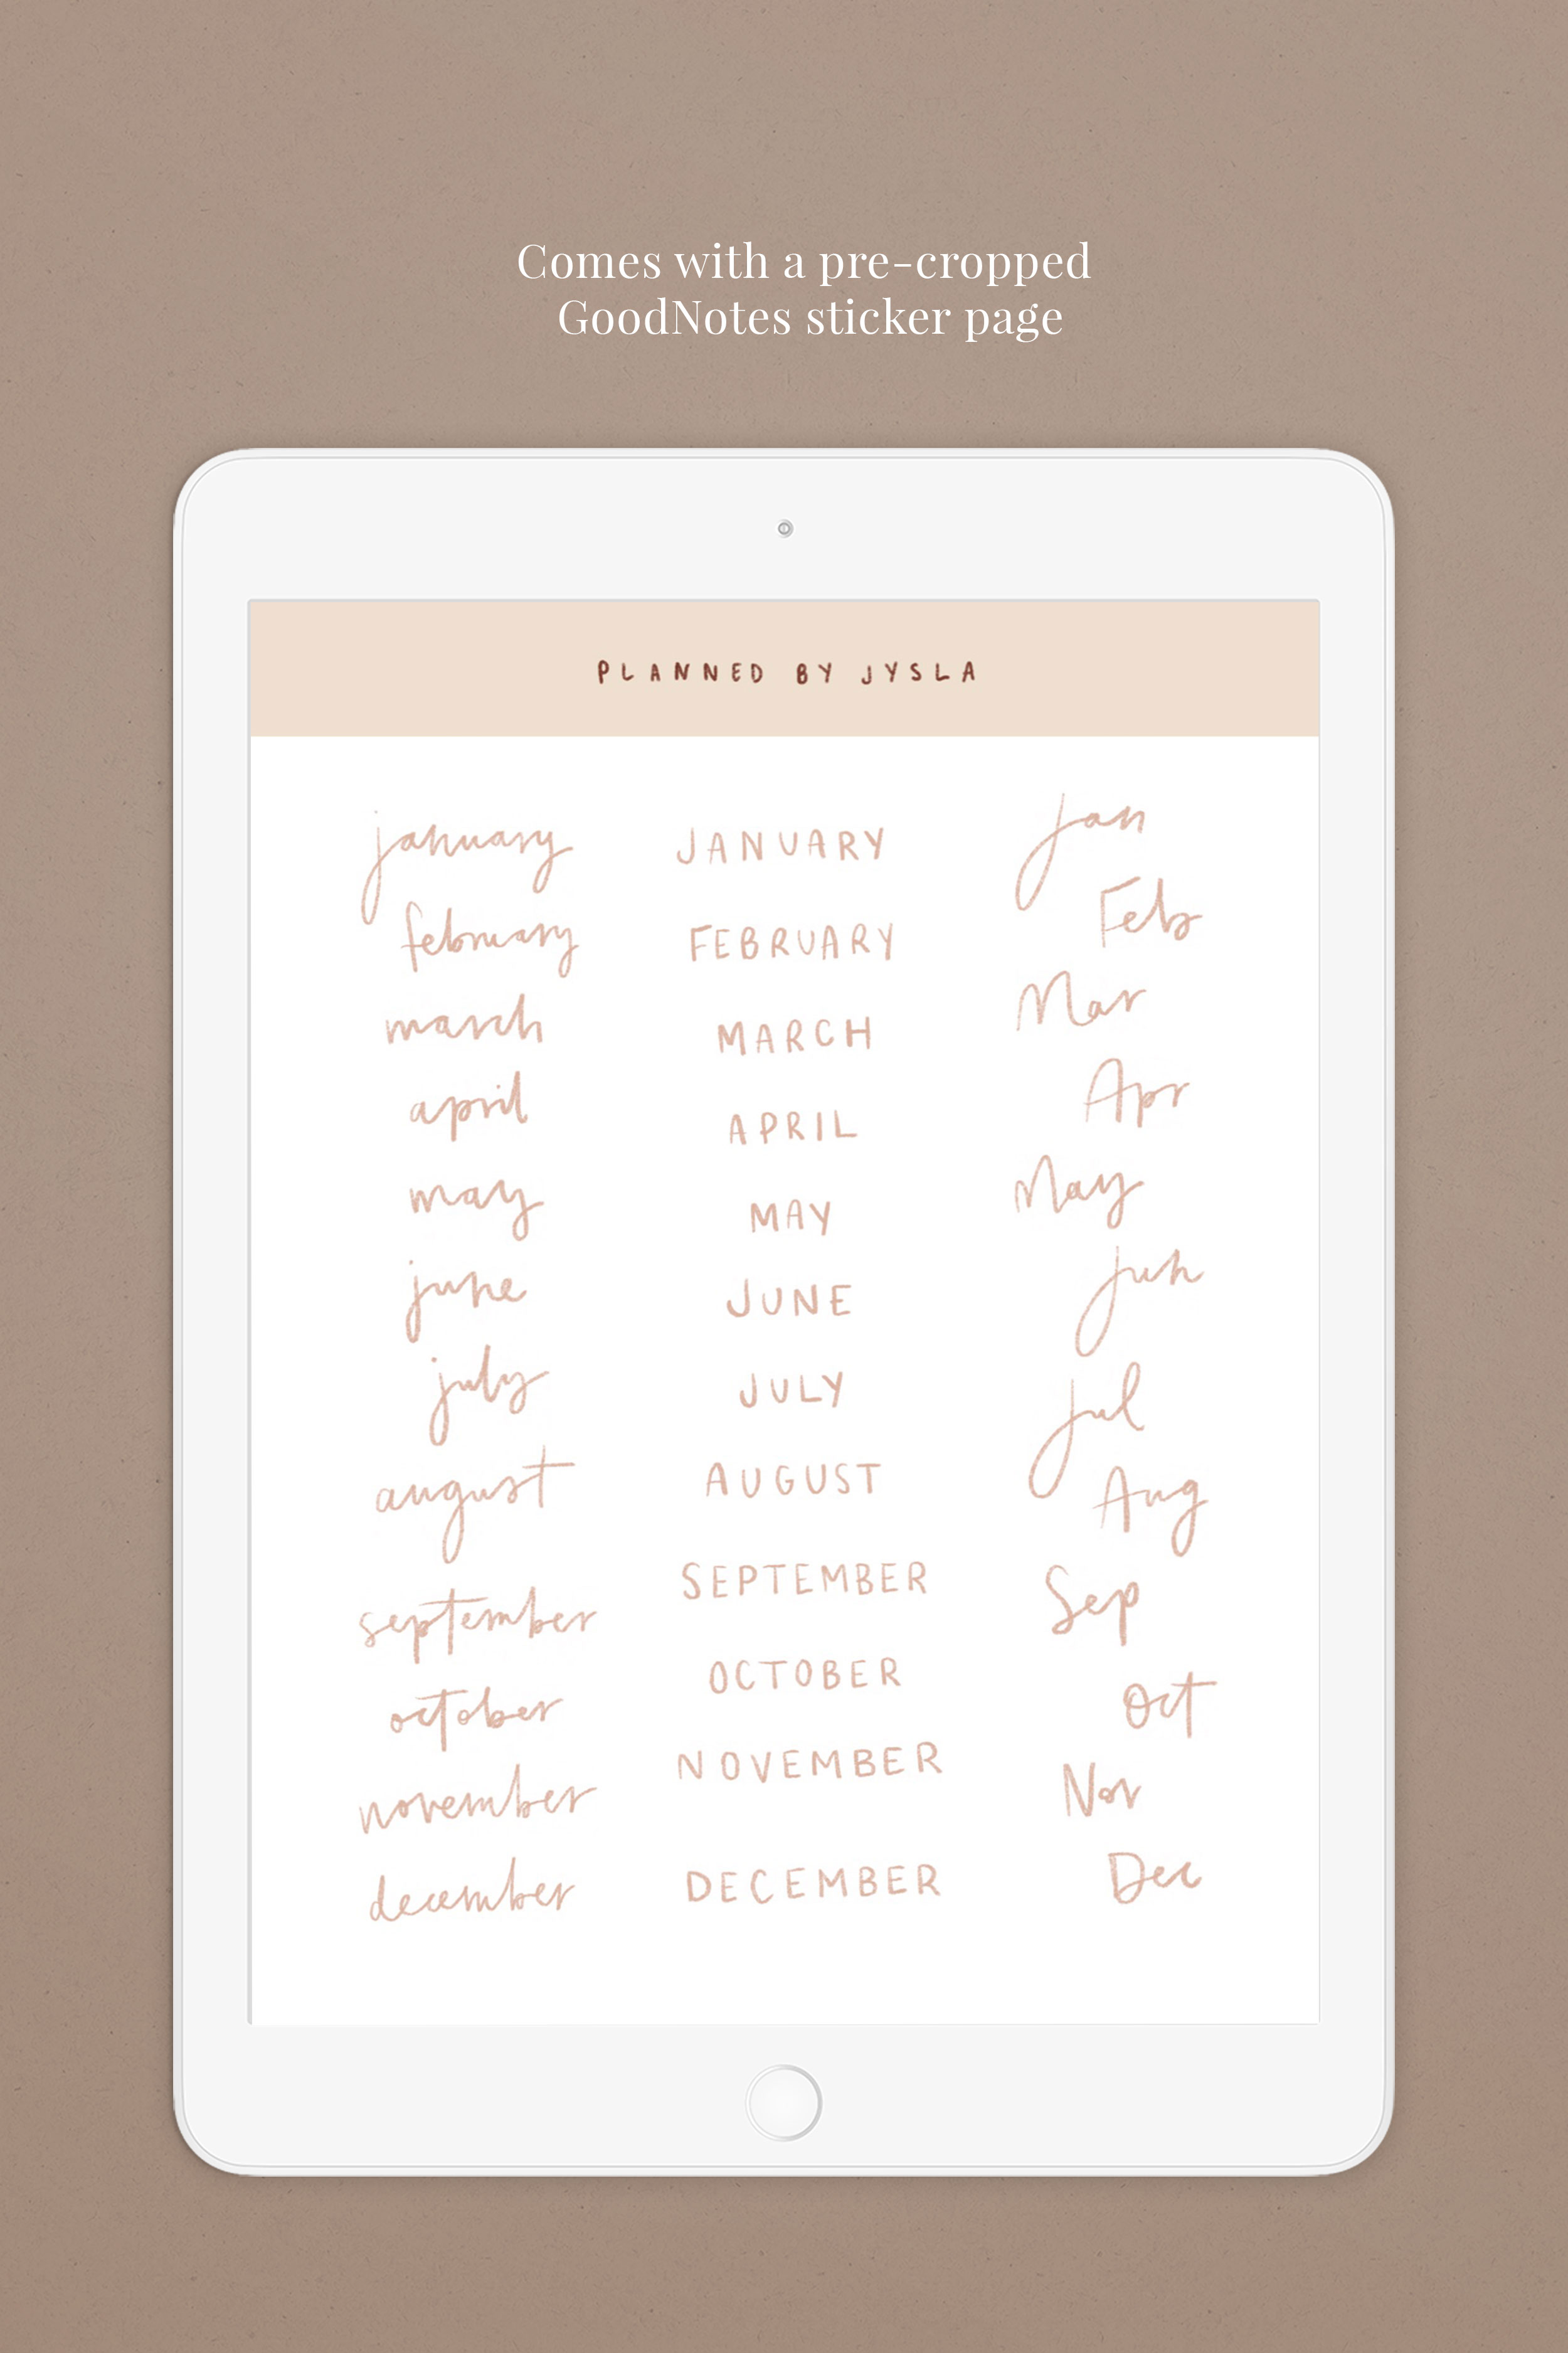 Comes with a pre-cropped
GoodNotes sticker page
PLANNED BY JYSLA
january JANUARY Jan
february FEBRUARY Feb
march MARCH Mar
april APRIL Apr
may MAY May
june JUNE Jun
july JULY Jul
august AUGUST Aug
september SEPTEMBER Sep
october OCTOBER Oct
november NOVEMBER Nov
december DECEMBER Dec